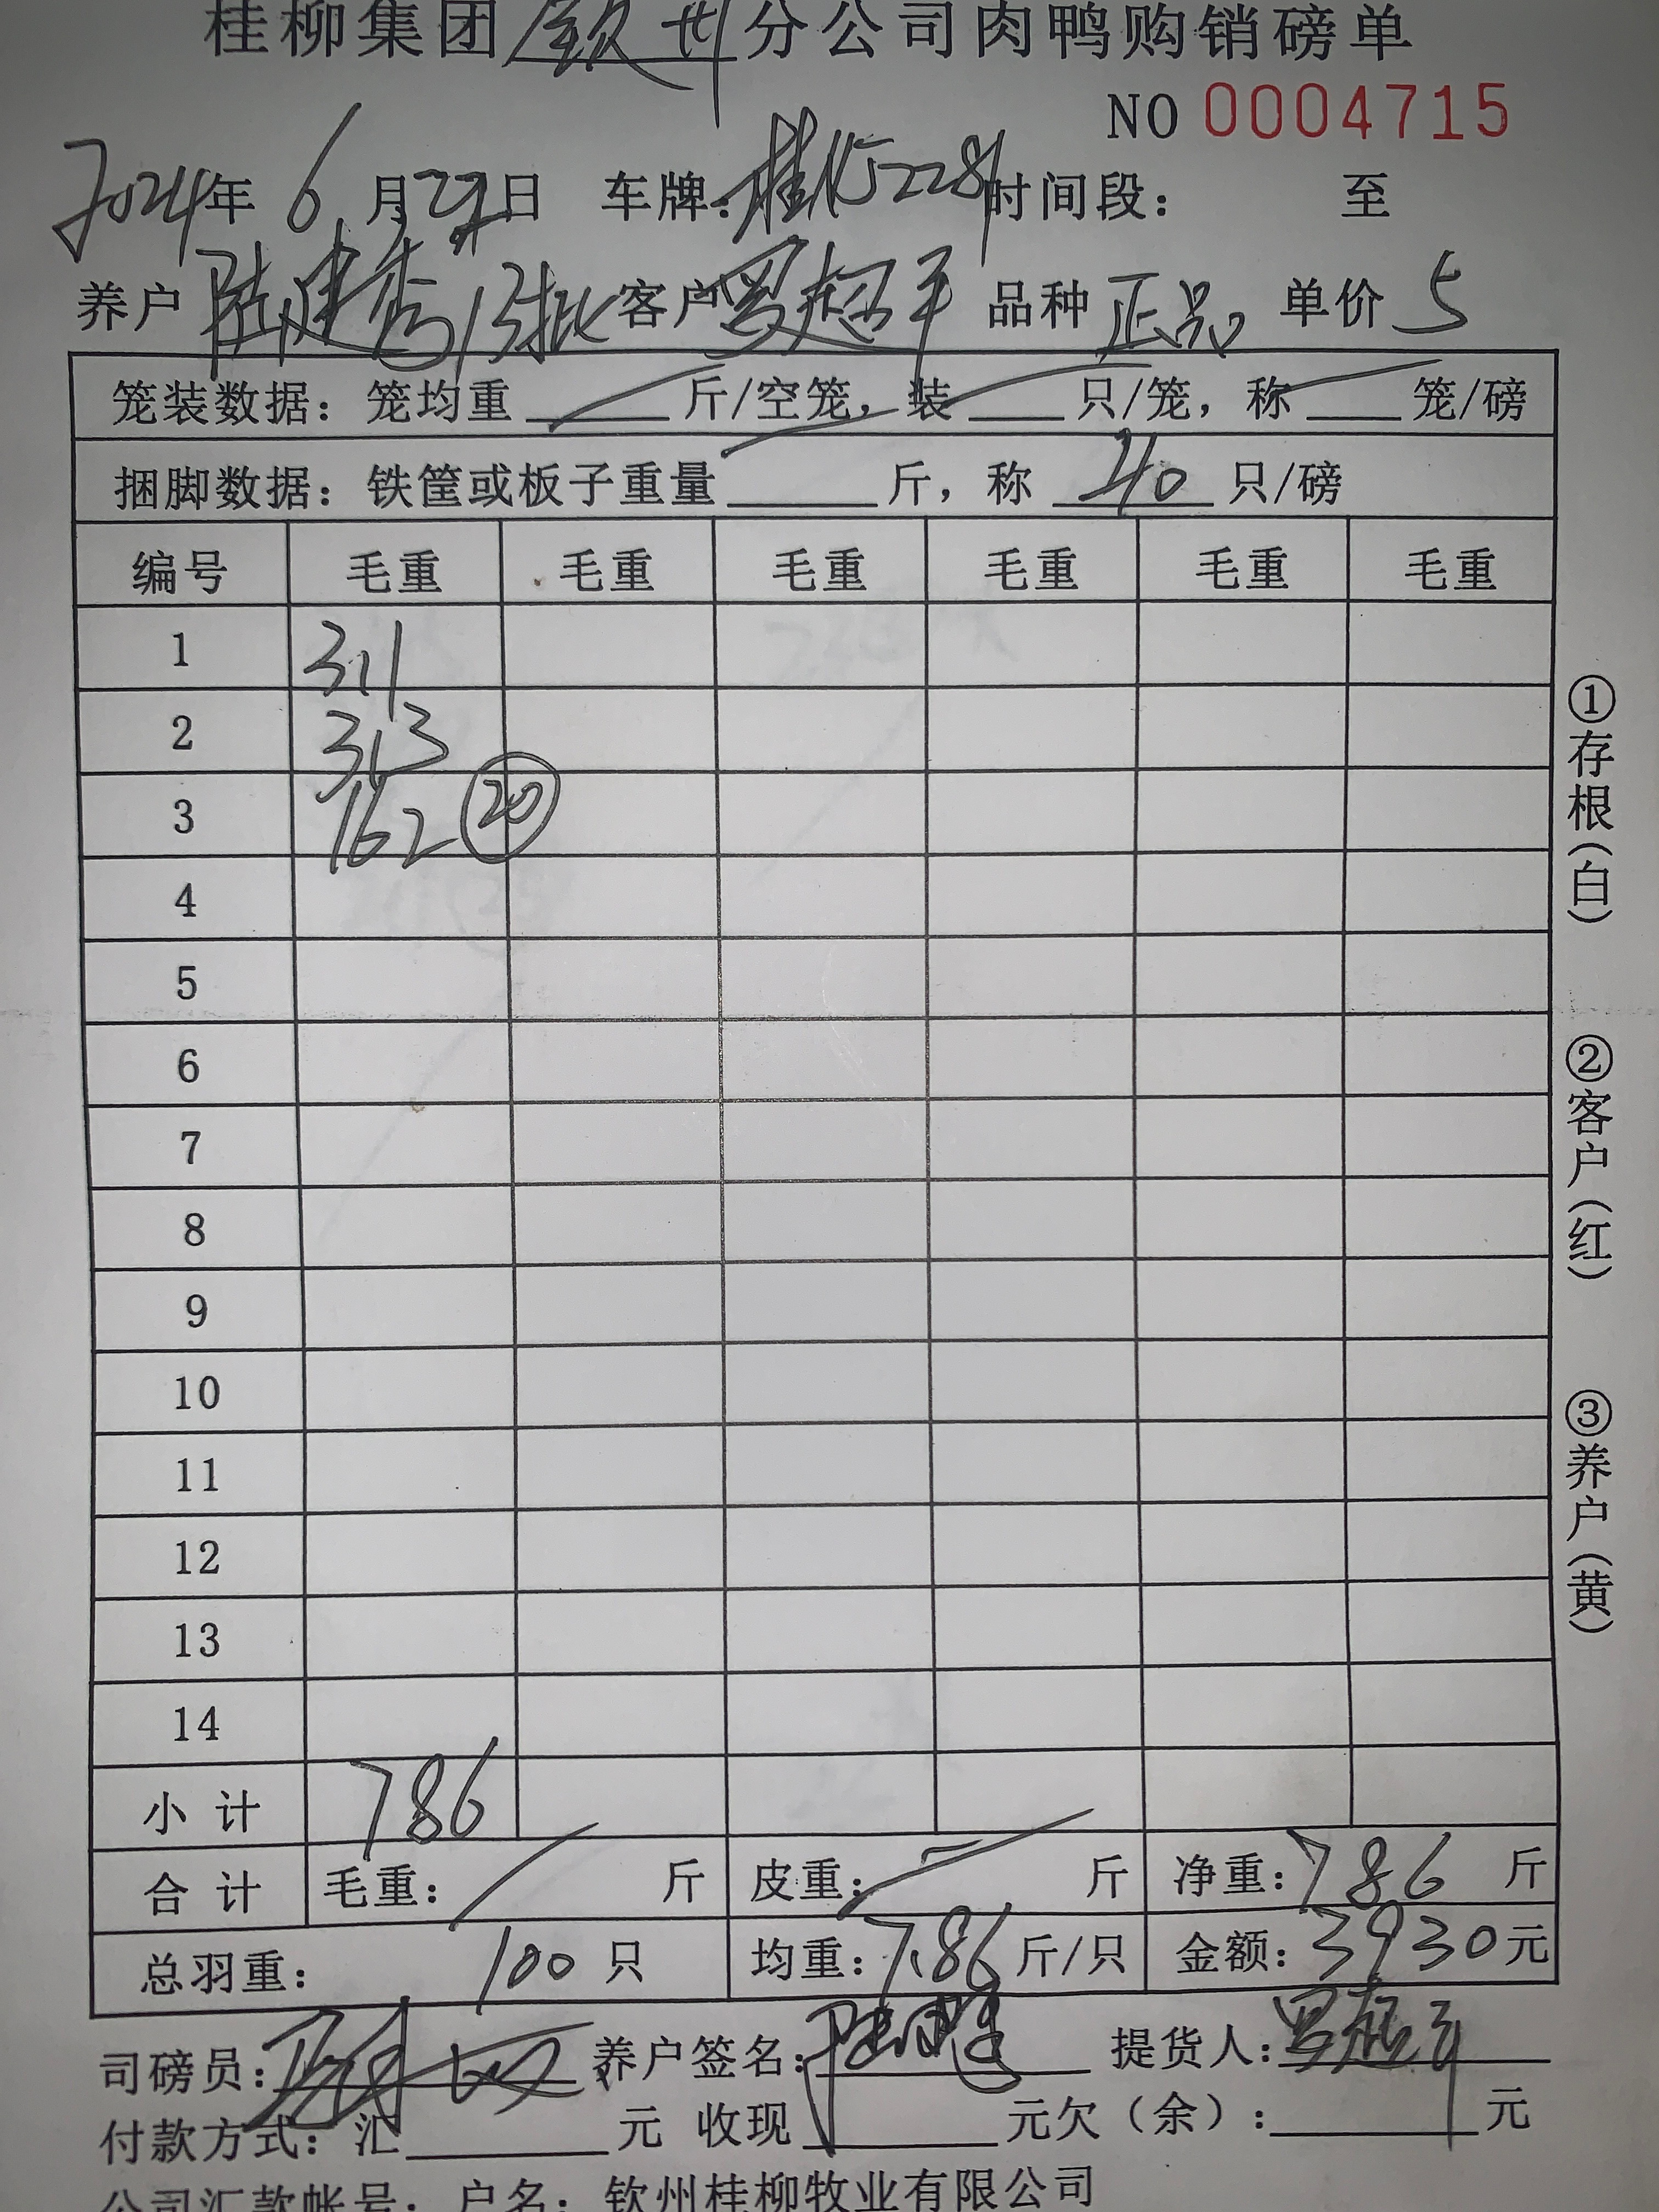 桂柳集团钦州分公司肉鸭购销磅单
NO 0004715
2024年 6 月 日 车牌: 时间段: 至
养户 陆建秀13批 客户 罗超平 品种 正品 单价 5
笼装数据: 笼均重 斤/空笼, 装 只/笼, 称 笼/磅
捆脚数据: 铁筐或板子重量 斤, 称 40 只/磅
编号 毛重 毛重 毛重 毛重 毛重 毛重
1 311
2 313
3 162 ⑳
4
5
6
7
8
9
10
11
12
13
14
小计 786
合计 毛重: 斤 皮重: 斤 净重: 786 斤
总羽重: 100 只 均重: 7.86 斤/只 金额: 3930元
司磅员: 养户签名: 提货人: 罗超平
付款方式: 汇 元 收现 元欠（余）: 元
公司汇款帐号: 户名: 钦州桂柳牧业有限公司
①存根（白）
②客户（红）
③养户（黄）